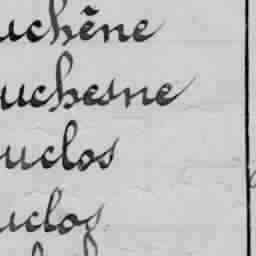 uchêne
uchesne
uclos
uclos